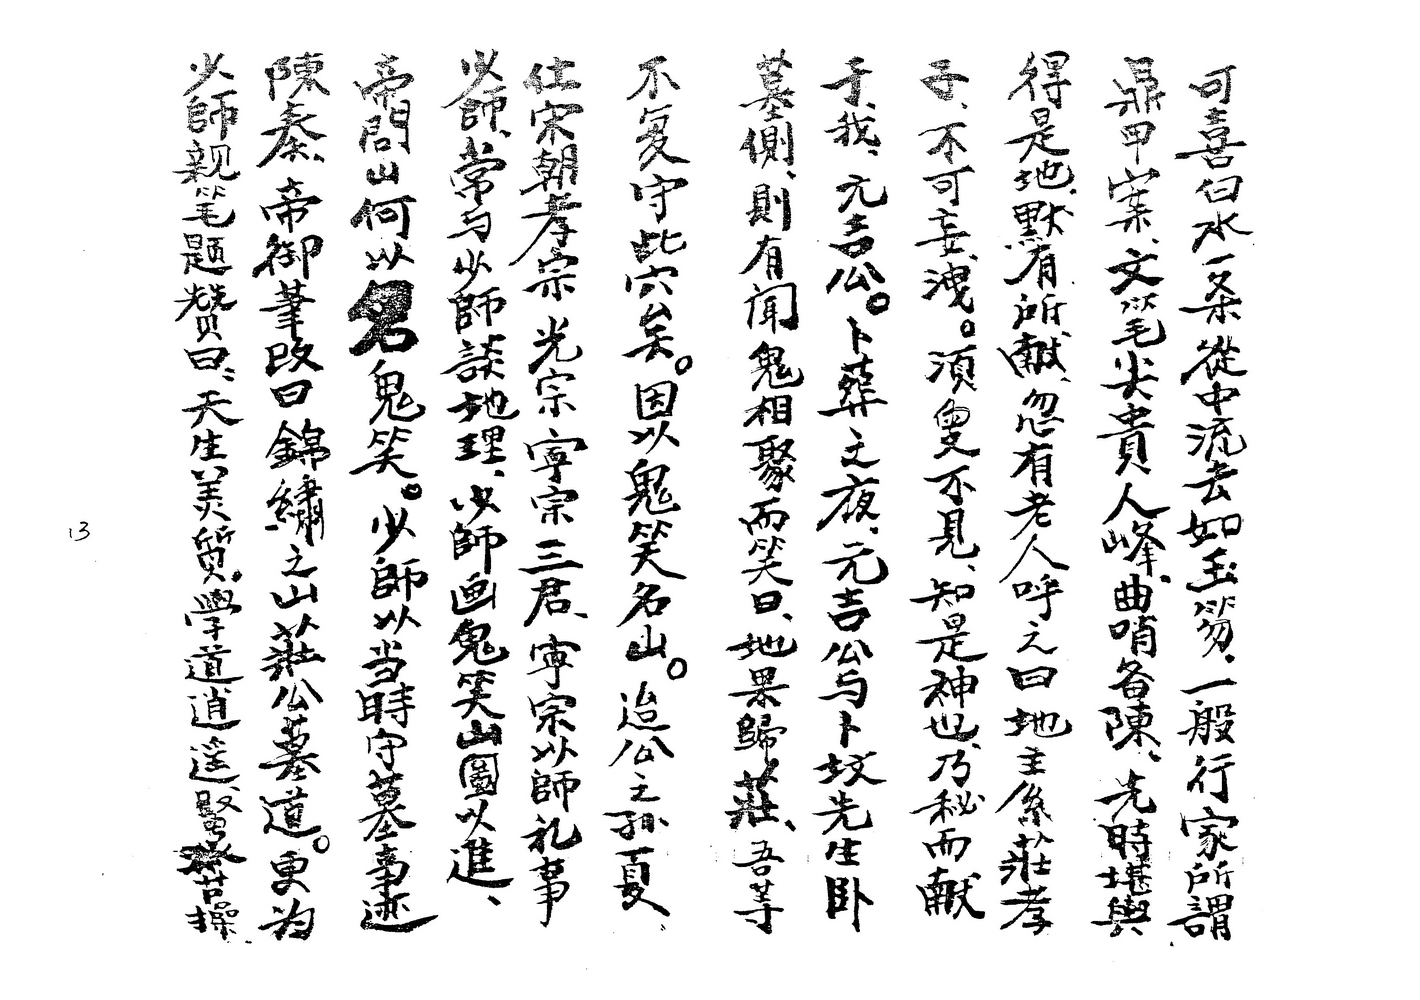 可喜白水一条從中流去如玉笏．一般行家所謂
鼎甲案、文笔尖貴人峰、曲哨备陳、先時堪輿
得是地、默有所献、忽有老人呼之曰地主係莊孝
子、不可妄洩。須臾不見、知是神也、乃秘而献
于我、元吉公。卜葬之夜、元吉公与卜坟先生卧
墓側、則有闻鬼相聚而笑曰、地果歸莊、吾等
不复守此穴矣。因以鬼笑名山。迨公之孙夏、
仕宋朝孝宗光宗寧宗三君、寧宗以師礼事
少師、常与少師談地理、少師画鬼笑山圖以進、
帝問山何以名鬼笑。少師以当時守墓事迹
陳奏、帝御筆改曰錦繡之山莊公墓道。更为
少師親笔题贊曰：天生美質。學道逍遥、苦操
13